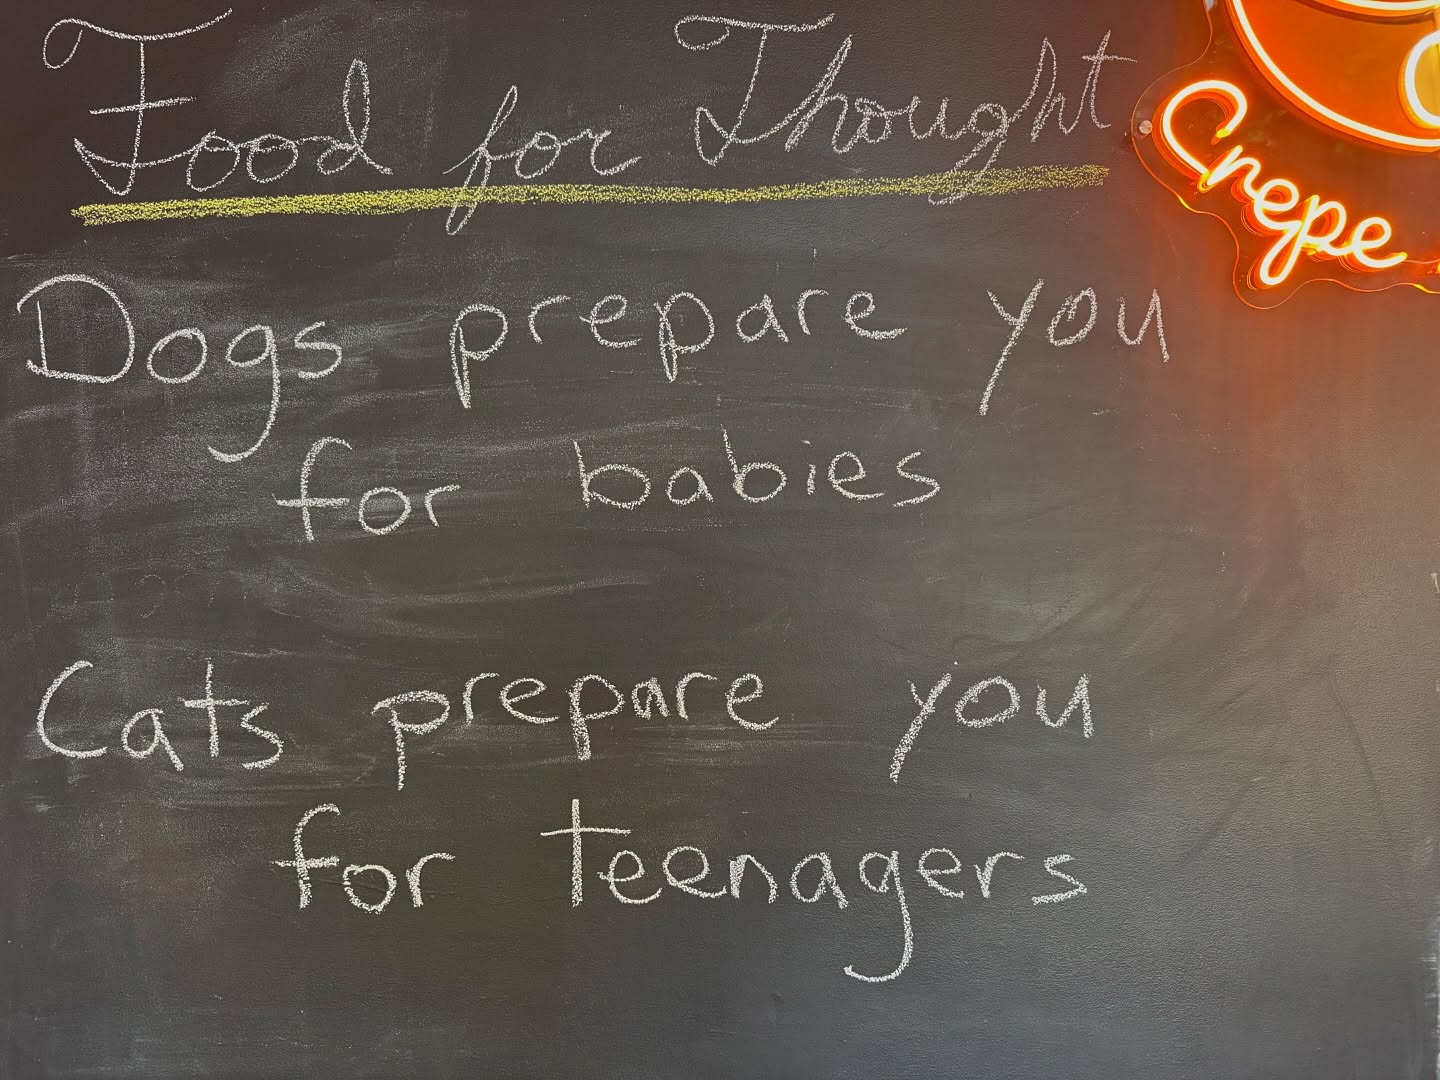 Food for Thought
Crepe
Dogs prepare you
for babies
Cats prepare you
for teenagers